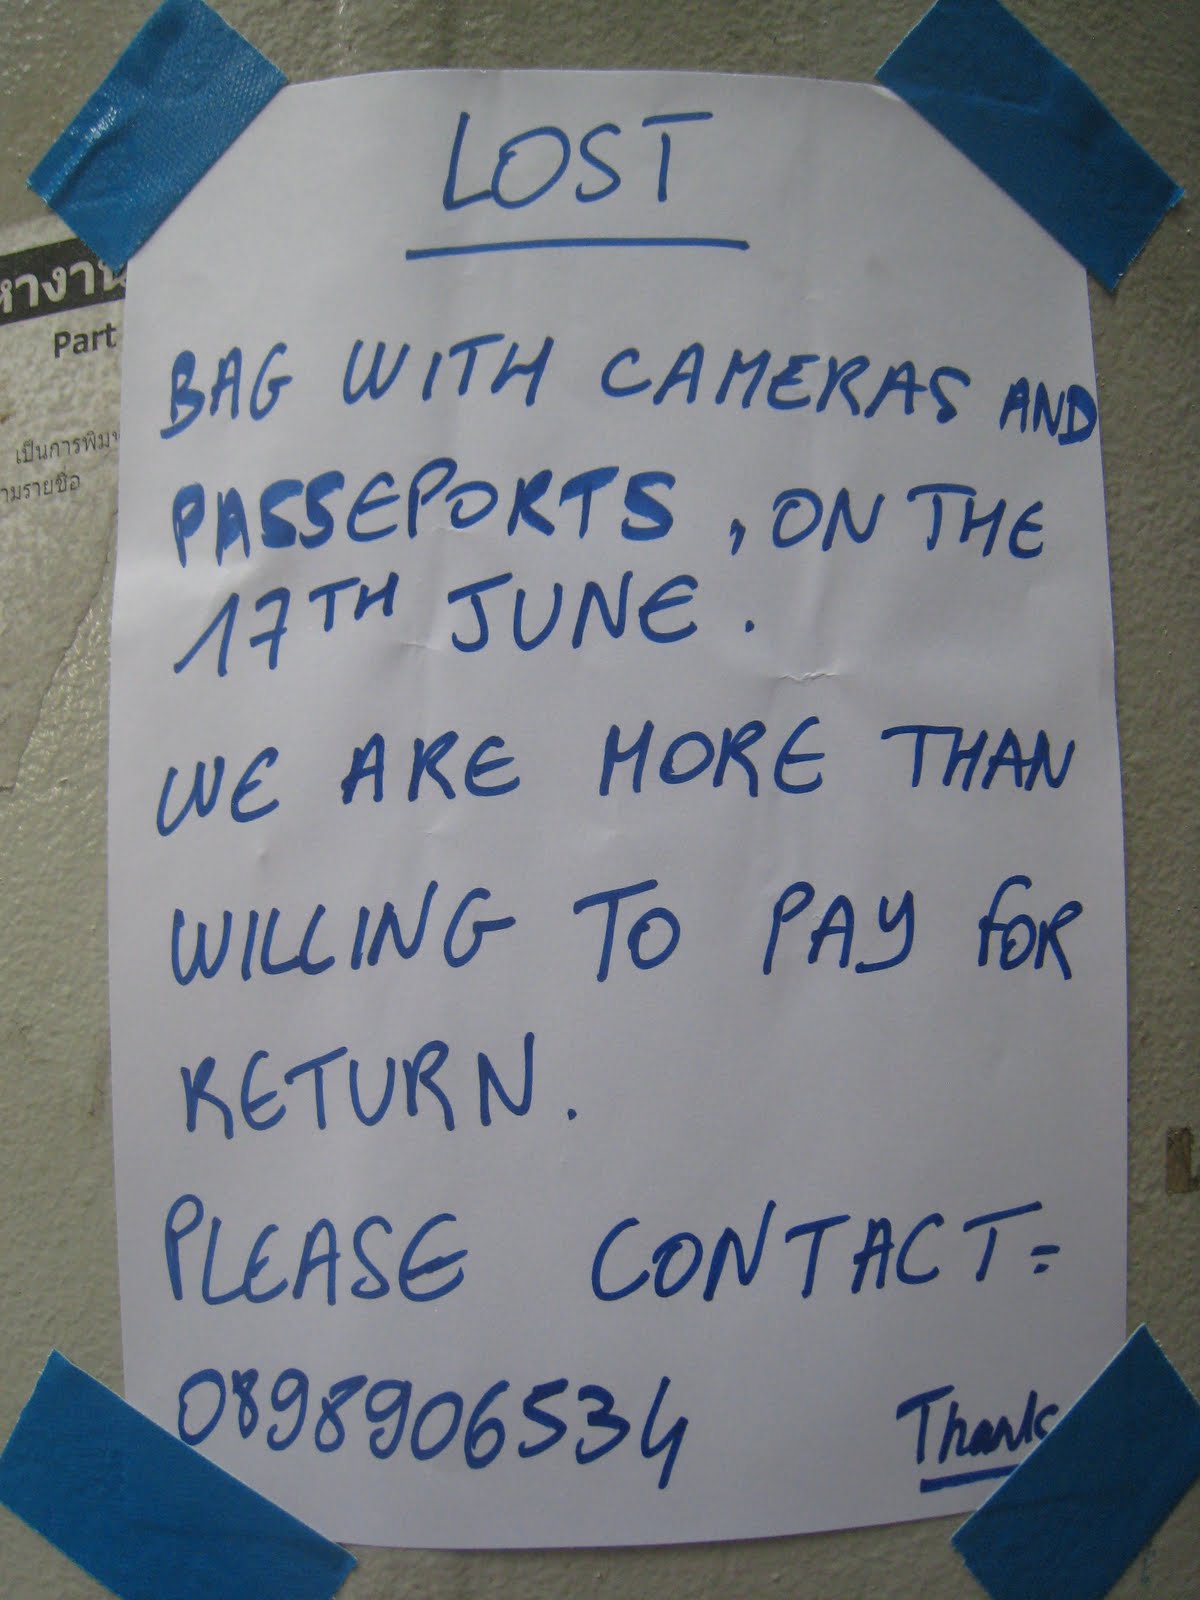 LOST
BAG WITH CAMERAS AND
PASSEPORTS, ON THE
17TH JUNE.
WE ARE MORE THAN
WILLING TO PAY FOR
RETURN.
PLEASE CONTACT=
0898906534
Thank
หางาน
Part
เป็นการพิมพ์
ามรายชื่อ